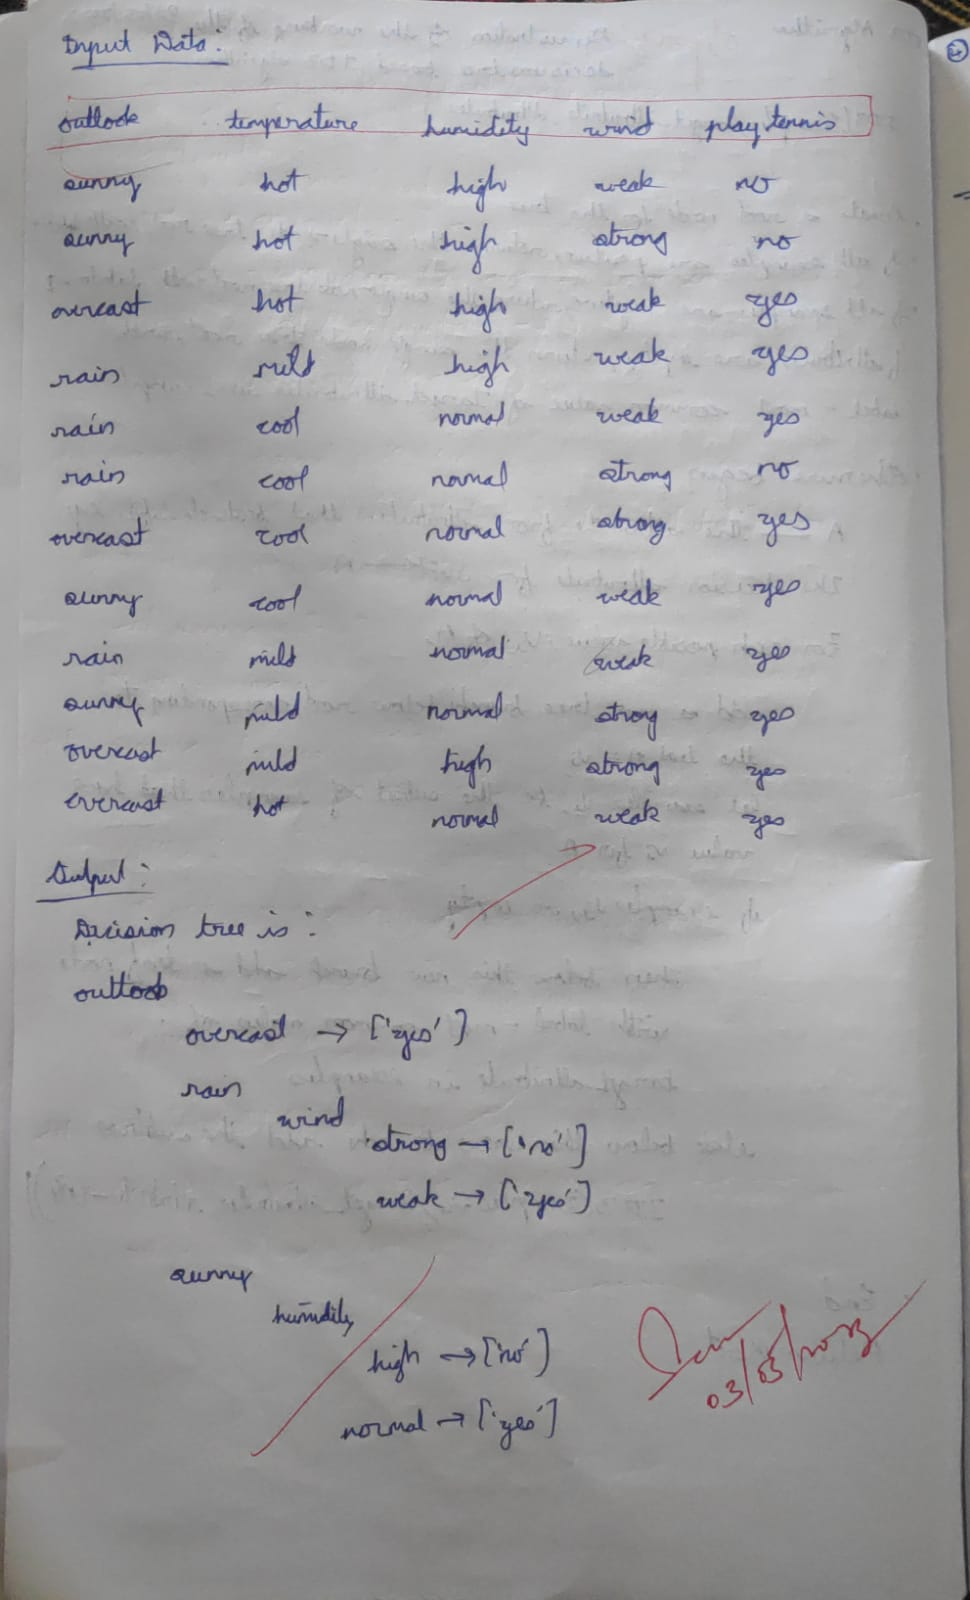 Input Data:
outlook temperature humidity wind play tennis
sunny hot high weak no
sunny hot high strong no
overcast hot high weak yes
rain mild high weak yes
rain cool normal weak yes
rain cool normal strong no
overcast cool normal strong yes
sunny cool normal weak yes
rain mild normal weak yes
sunny mild normal strong yes
overcast mild high strong yes
overcast hot normal weak yes
Output:
Decision tree is:
outlook
overcast → ['yes']
rain
wind
strong → ['no']
weak → ['yes']
sunny
humidity
high → ['no']
normal → ['yes']
03/05/2023